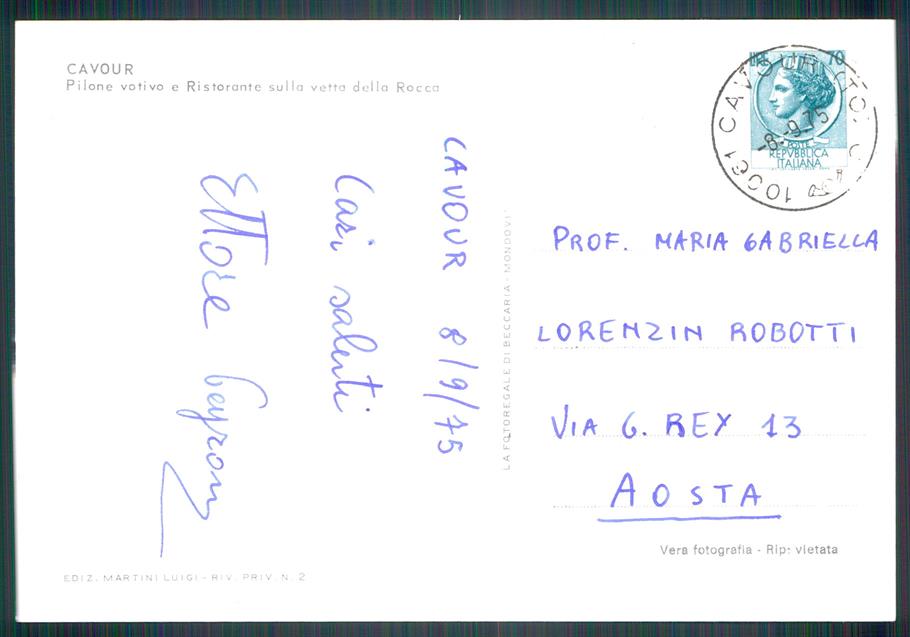 CAVOUR
Pilone votivo e Ristorante sulla vetta della Rocca
CAVOUR 8/9/75
Cari saluti
Ettore
LA FOTOREGALE DI BECCARIA - MONDOVI'
LIRE 70
POSTE
REPVBBLICA
ITALIANA
10061 CAVOUR (TO)
-8.-9.75
PROF. MARIA GABRIELLA
LORENZIN ROBOTTI
VIA G. REY 13
AOSTA
Vera fotografia - Rip: vietata
EDIZ. MARTINI LUIGI - RIV. PRIV. N. 2